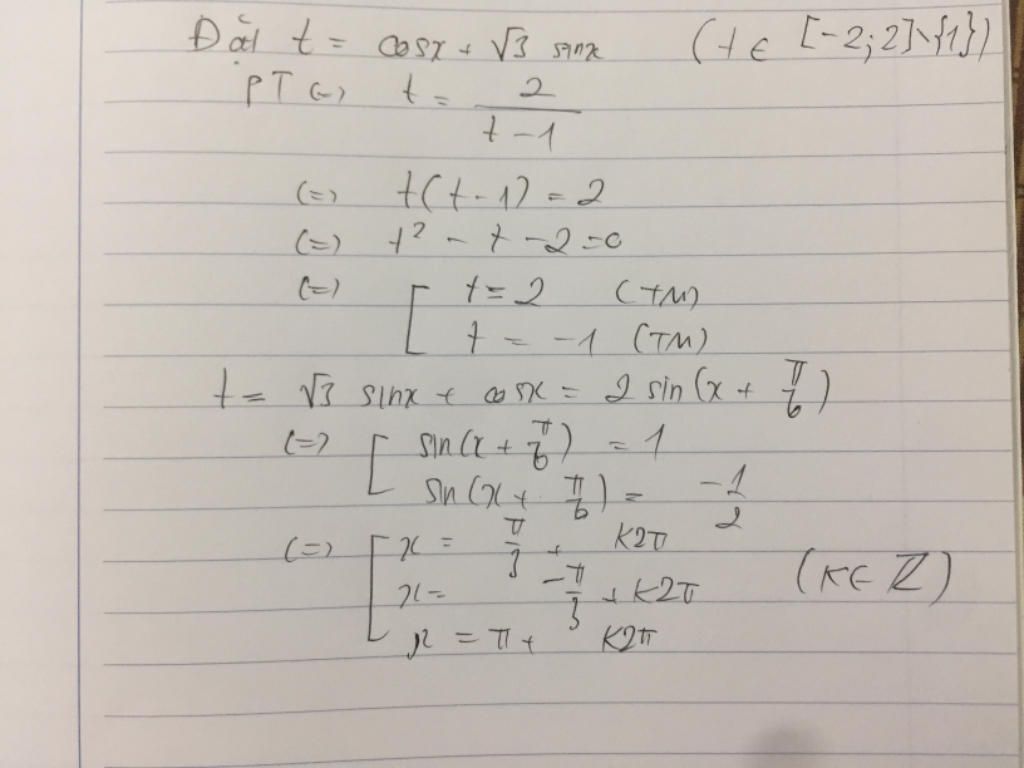 Đặt t = cosx + √3 sinx (t ∈ [-2;2]\{1})
PT (=) t = 2/(t-1)
(=) t(t-1) = 2
(=) t² - t - 2 = 0
(=) [ t = 2 (TM)
t = -1 (TM)
t = √3 sinx + cosx = 2 sin(x + π/6)
(=) [ sin(x + π/6) = 1
sin(x + π/6) = -1/2
(=) [ x = π/3 + k2π
x = -π/3 + k2π (k ∈ ℤ)
x = π + k2π